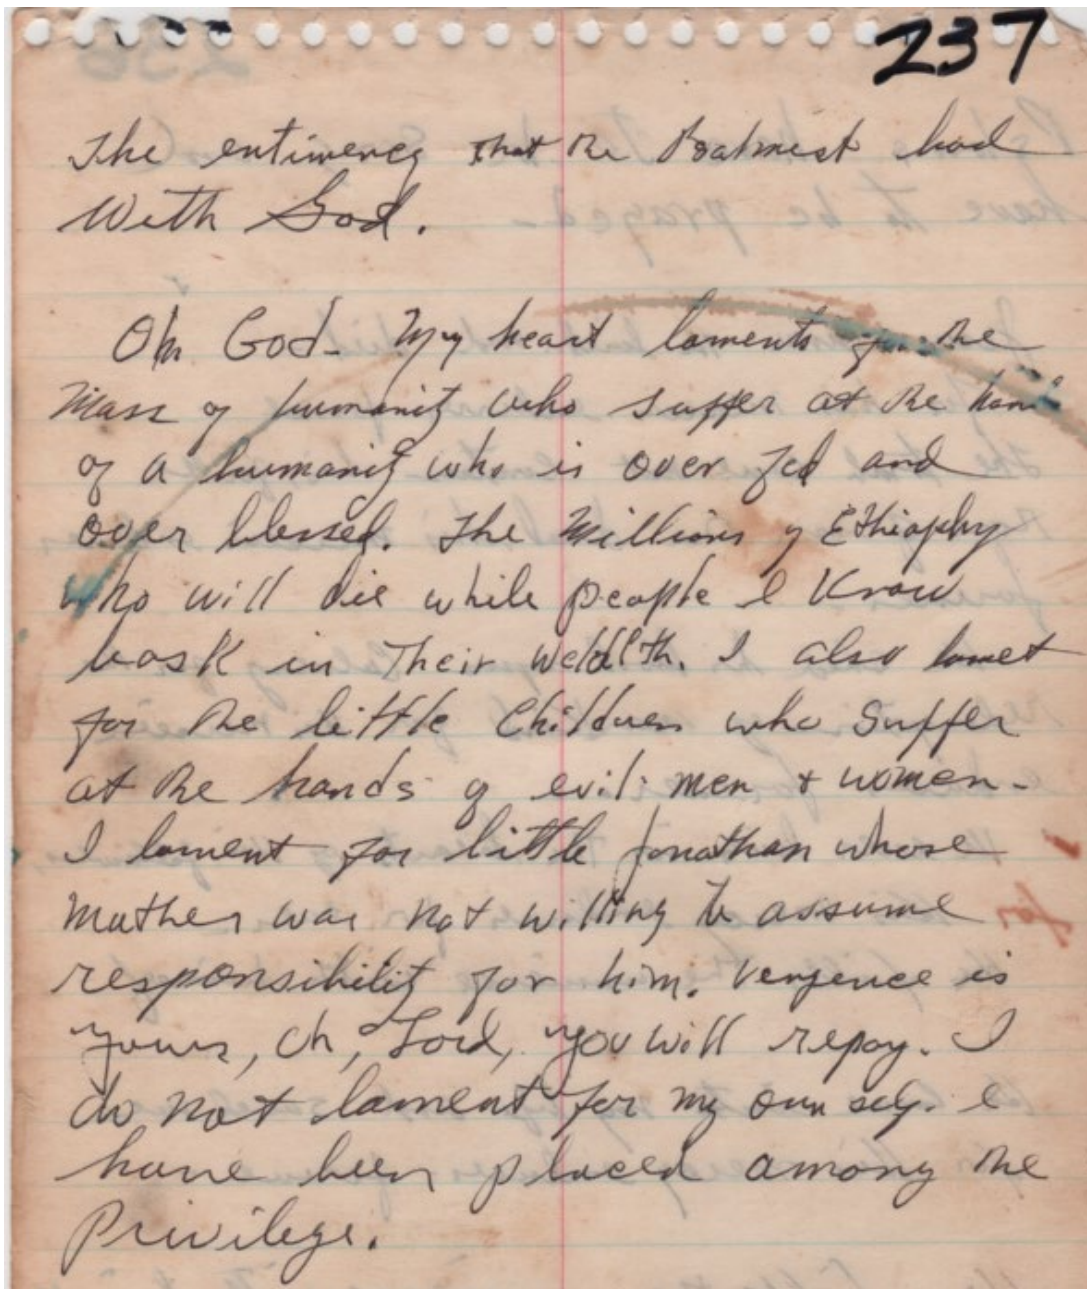 237
The entimency that the Psalmest had
With God.
Oh God - My heart laments for the
Mass of humanity who suffer at the hand
of a humanity who is over fed and
over blessed. The Millions of Ethiophy
who will die while people I Know
bask in Their Wealth. I also lamet
for the little Children who Suffer
at the hands of evil men + women -
I lament for little Jonathan whose
Mother was not willing to assume
responsibility for him. Vengence is
Yours, Oh, Lord, you will repay. I
do not lament for my own self. I
have been placed among the
Privilege.